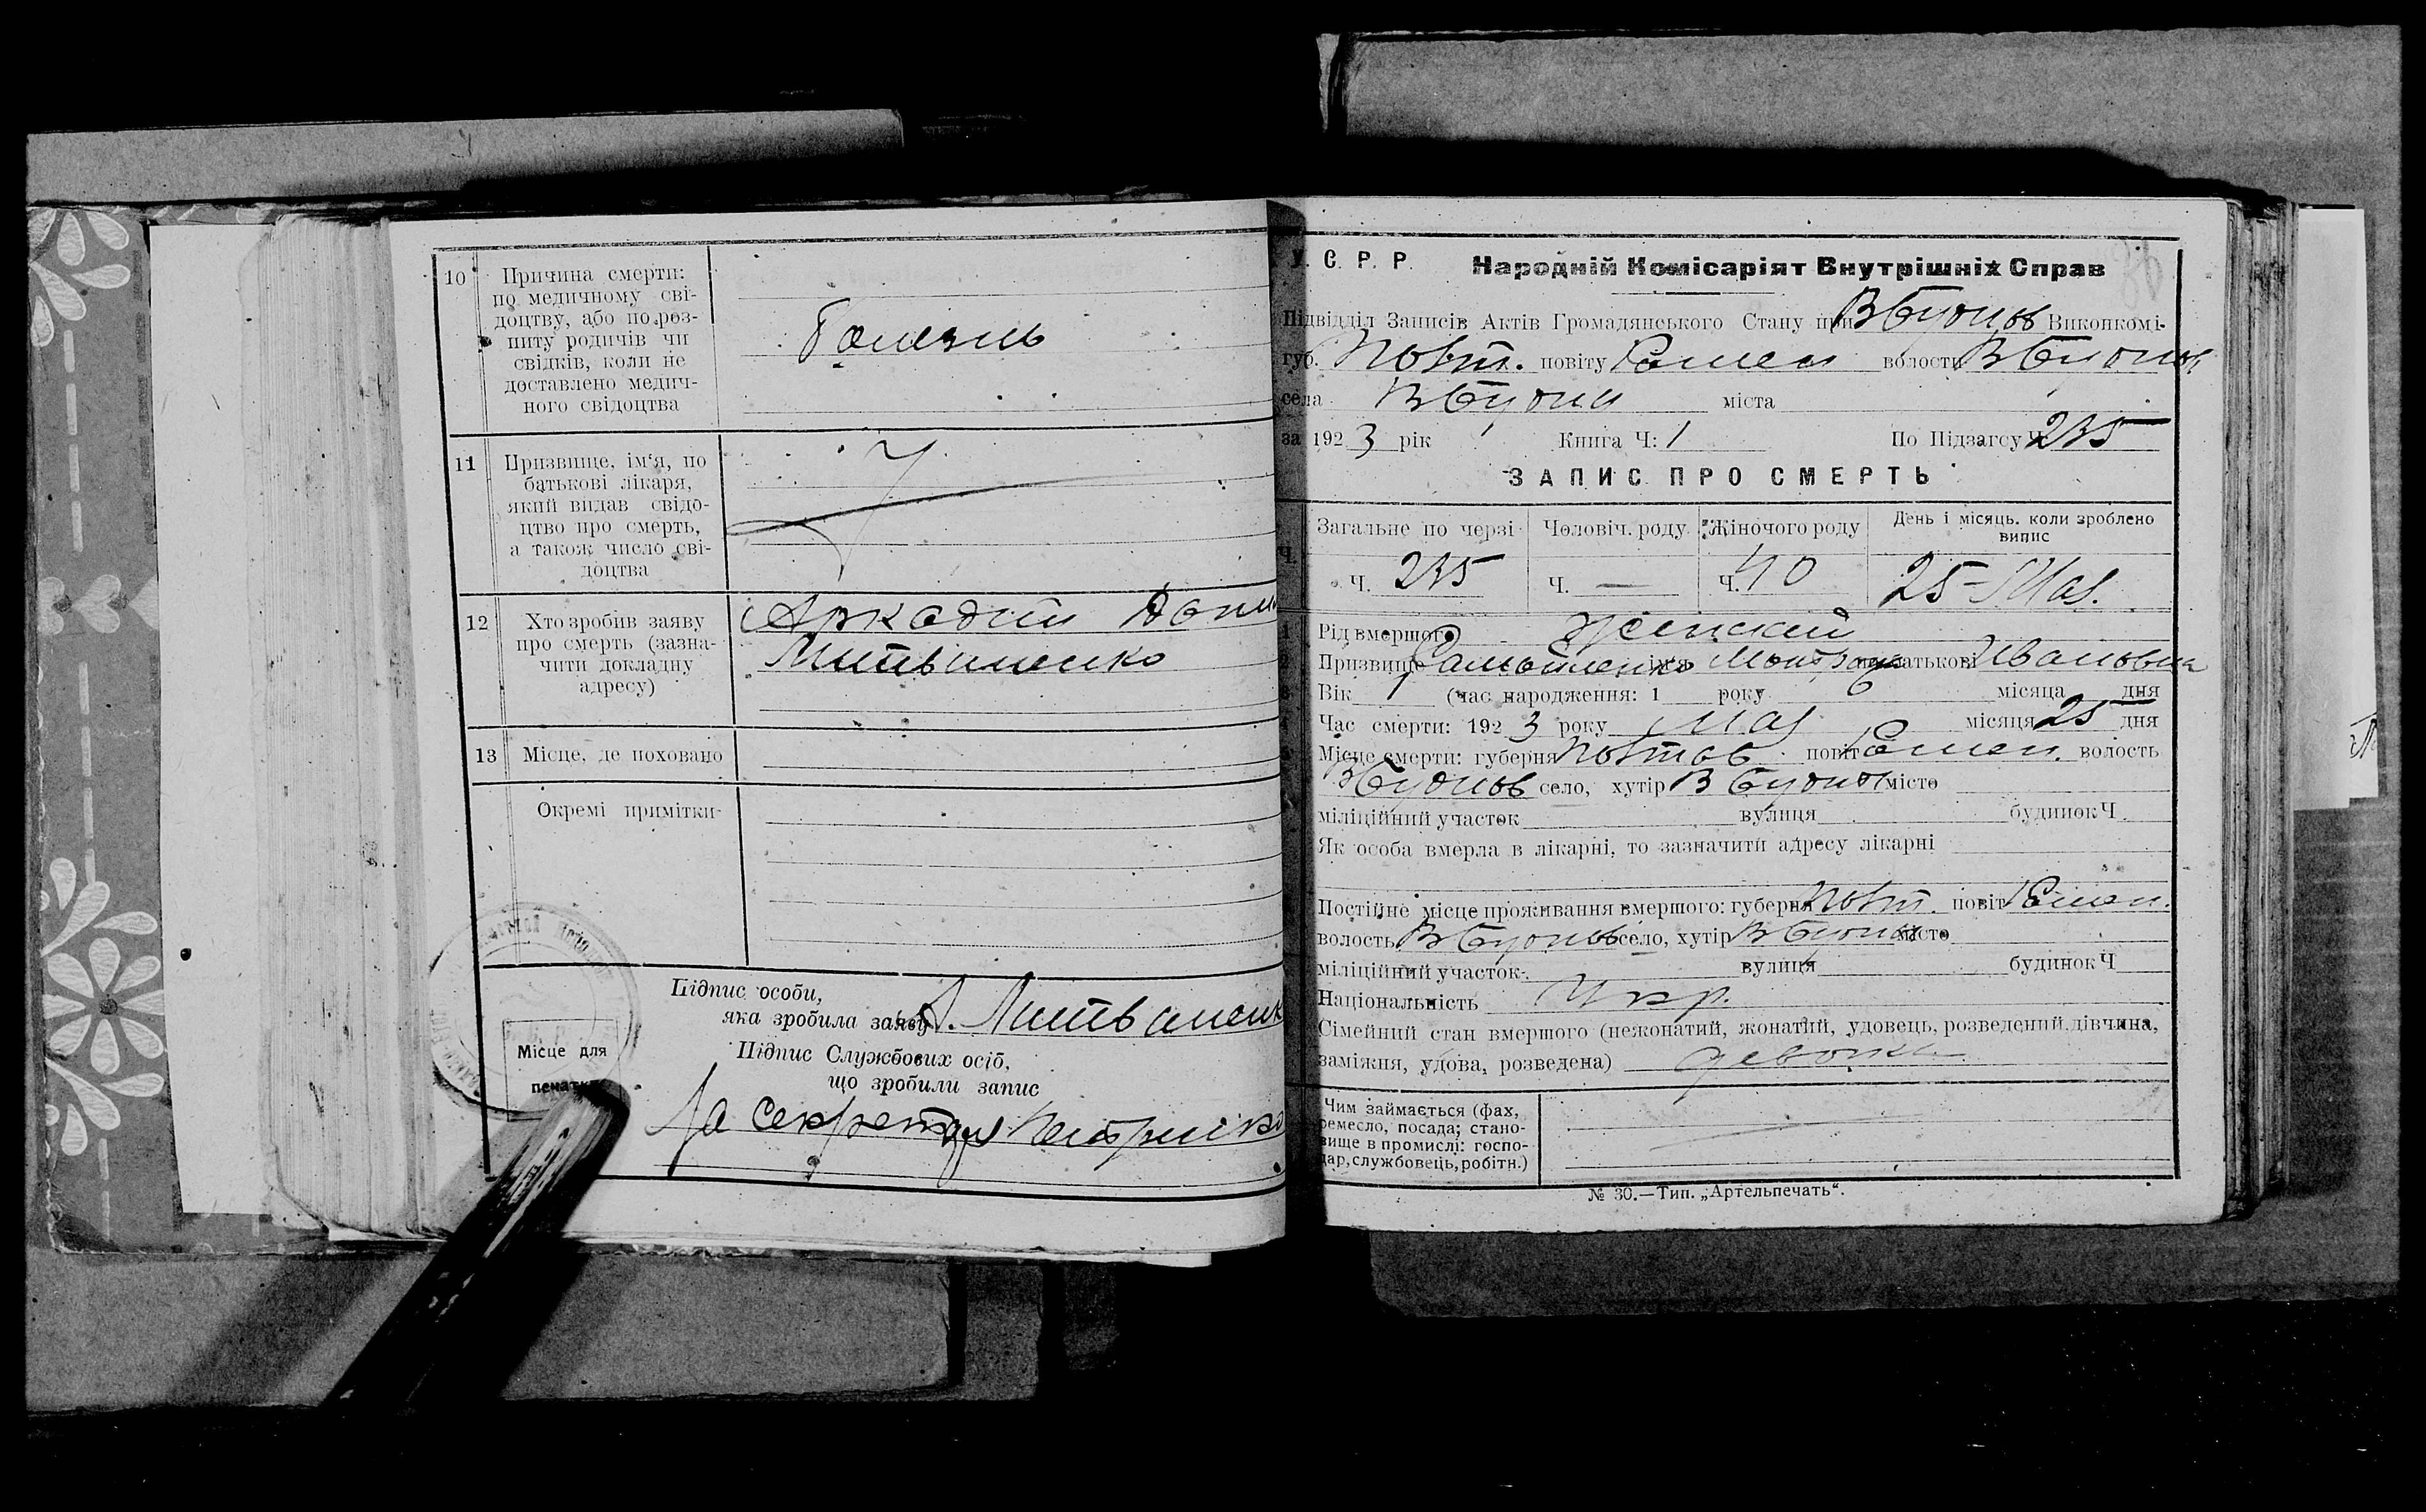 10
Причина смерти:
по медичному сві-
доцтву, або по роз-
питу родичів чи
свідків, коли не
доставлено медич-
ного свідоцтва
Болезнь
11
Призвище, ім'я, по
батькові лікаря,
який видав свідо-
цтво про смерть,
а також число сві-
доцтва
12
Хто зробив заяву
про смерть (зазна-
чити докладну
адресу)
Аркадий
Литвиненко
13
Місце, де поховано
Окремі примітки
Підпис особи,
яка зробила заяву А. Литвиненк
Підпис Службових осіб,
що зробили запис
Місце для
печатки
За секретаря
У. С. Р. Р. Народній Комісаріят Внутрішніх Справ
Підвідділ Записів Актів Громадянського Стану при ВБудков Виконкомі
губ. Полт. повіту Ромен волости ВБудков
села ВБудки міста
за 1923 рік Книга Ч: 1 По Підзагсу Ч. 235
ЗАПИС ПРО СМЕРТЬ
Загальне по черзі Чоловіч. роду Жіночого роду День і місяць, коли зроблено
випис
Ч. Ч. 235 Ч. — Ч. 110 25 Мая
1 Рід вмершого Женский
2 Призвище ім'я по батькові Ивановна
3 Вік 1 (час народження: 1 року 6 місяца дня
4 Час смерти: 1923 року Мая місяця 25 дня
5 Місце смерти: губерня Полтав повіт Ромен. волость
ВБудков село, хутір ВБудки місто
міліційний участок вулиця будинок Ч
Як особа вмерла в лікарні, то зазначити адресу лікарні
Постійне місце проживання вмершого: губерня Полт. повіт Ромен.
волость ВБудков село, хутір ВБудки місто
міліційний участок вулиця будинок Ч
Національність Укр.
Сімейний стан вмершого (нежонатий, жонатий, удовець, розведений, дівчина,
заміжня, удова, розведена) девочка
Чим займається (фах,
ремесло, посада; стано-
вище в промислі: госпо-
дар, службовець, робітн.)
№ 30.—Тип. „Артельпечать“.